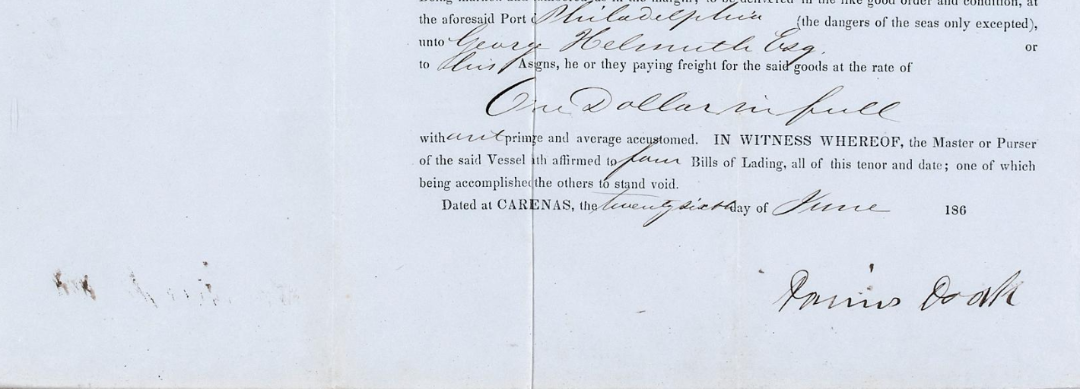 being marked and numbered as in the margin; to be delivered in the like good order and condition, at
the aforesaid Port Philadelphia (the dangers of the seas only excepted),
unto George Helmuth Esq. or
to his Asgns, he or they paying freight for the said goods at the rate of
One Dollar in full
without primge and average accustomed. IN WITNESS WHEREOF, the Master or Purser
of the said Vessel ath affirmed to four Bills of Lading, all of this tenor and date; one of which
being accomplished the others to stand void.
Dated at CARENAS, the twenty sixth day of June 186
Doak